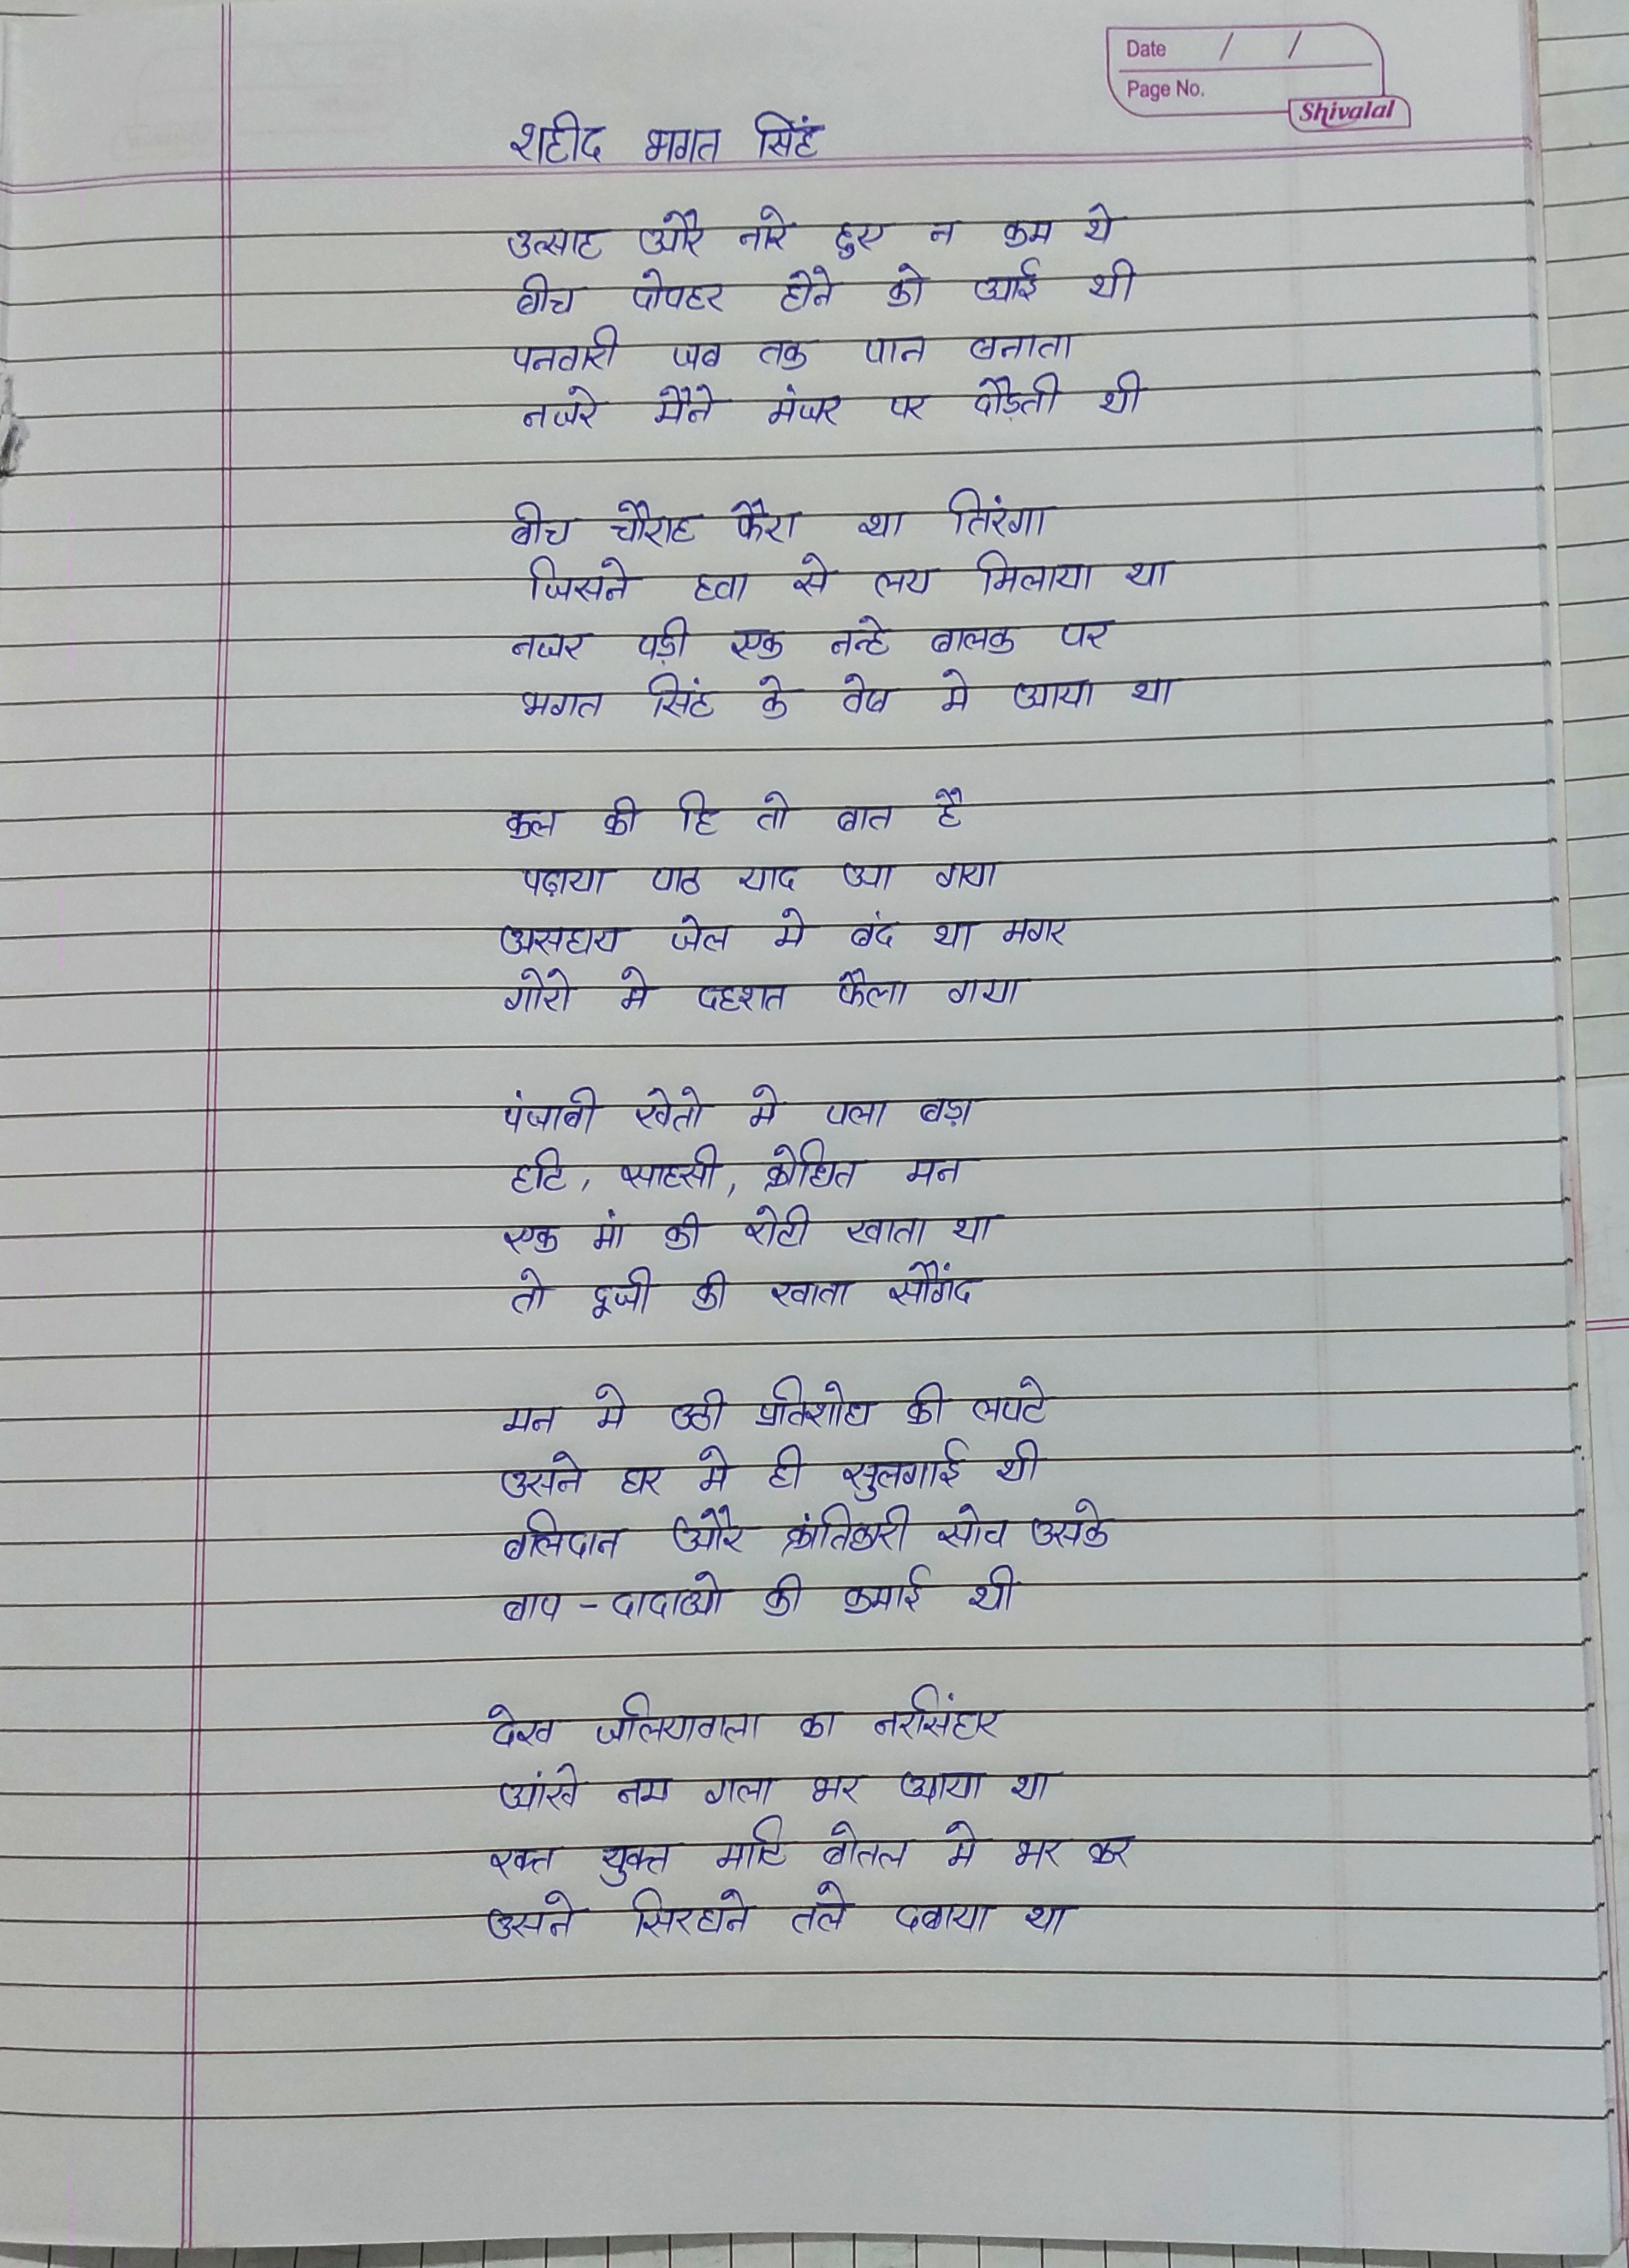 Date / /
Page No.
Shivalal
शहीद भगत सिहं
उत्साह और नारे हुए न कम थे
बीच दोपहर होने को आई थी
पनवारी जब तक पान बनाता
नजरे मैने मंजर पर दौड़ती थी
बीच चौराह फैरा था तिरंगा
जिसने हवा से लय मिलाया था
नजर पड़ी एक नन्हे बालक पर
भगत सिहं के वेष मे आया था
कल की हि तो बात है
पढ़ाया पाठ याद आ गया
असहाय जेल मे बंद था मगर
गोरो मे दहशत फैला गया
पंजाबी खेतो मे पला बड़ा
हटि, साहसी, क्रोधित मन
एक मां की रोटी खाता था
तो दूजी की खाता सौगंद
मन मे उठी प्रतिशोध की लपटे
उसने घर मे ही सुलगाई थी
बलिदान और क्रांतिकारी सोच उसके
बाप - दादाओ की कमाई थी
देख जलियावाला का नरसिंहार
आंखे नम गला भर आया था
रक्त युक्त माटि बोतल मे भर कर
उसने सिरहाने तले दबाया था